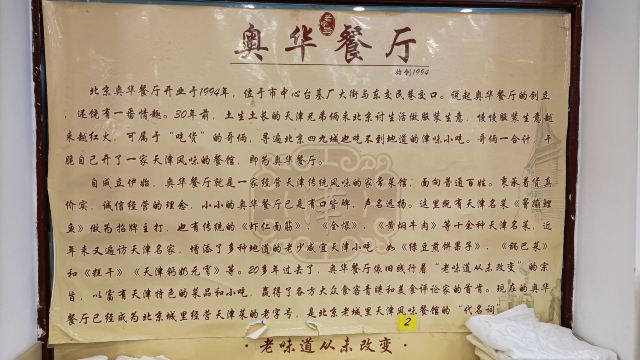 奥华餐厅
始创1994
北京奥华餐厅开业于1994年，位于市中心台基厂大街与东交民巷交口。说起奥华餐厅的创立，
还颇有一番情趣。30年前，土生土长的天津兄弟俩来北京讨生活做服装生意，候候服装生意越
来越红火，可属于“吃货”的哥俩，寻遍北京四九城也吃不到地道的津味小吃。哥俩一合计，干
脆自己开了一家天津风味的餐馆，即为奥华餐厅。
自成立伊始，奥华餐厅就是一家经营天津传统风味的家常菜馆，面向普通百姓。秉承着货真
价实，诚信经营的理念，小小的奥华餐厅已是有口皆碑，声名远扬。这里既有天津名菜《罾蹦鲤
鱼》做为招牌主打，也有传统的《虾仁面筋》，《全爆》，《黄焖牛肉》等十余种天津名菜，近
年来又遍访天津名家，增添了多种地道的老少咸宜天津小吃，如《绿豆煎饼果子》，《锅巴菜》
和《糕干》《天津奶奶元宵》等。20多年过去了，奥华餐厅依旧践行着“老味道从未改变”的宗
旨，以富有天津特色的菜品和小吃，赢得了各方大众食客青睐和美食评论家的首肯。现在的奥华
餐厅已经成为北京城里经营天津菜的老字号，是北京老城里天津风味餐馆的“代名词
2
·老味道从未改变·